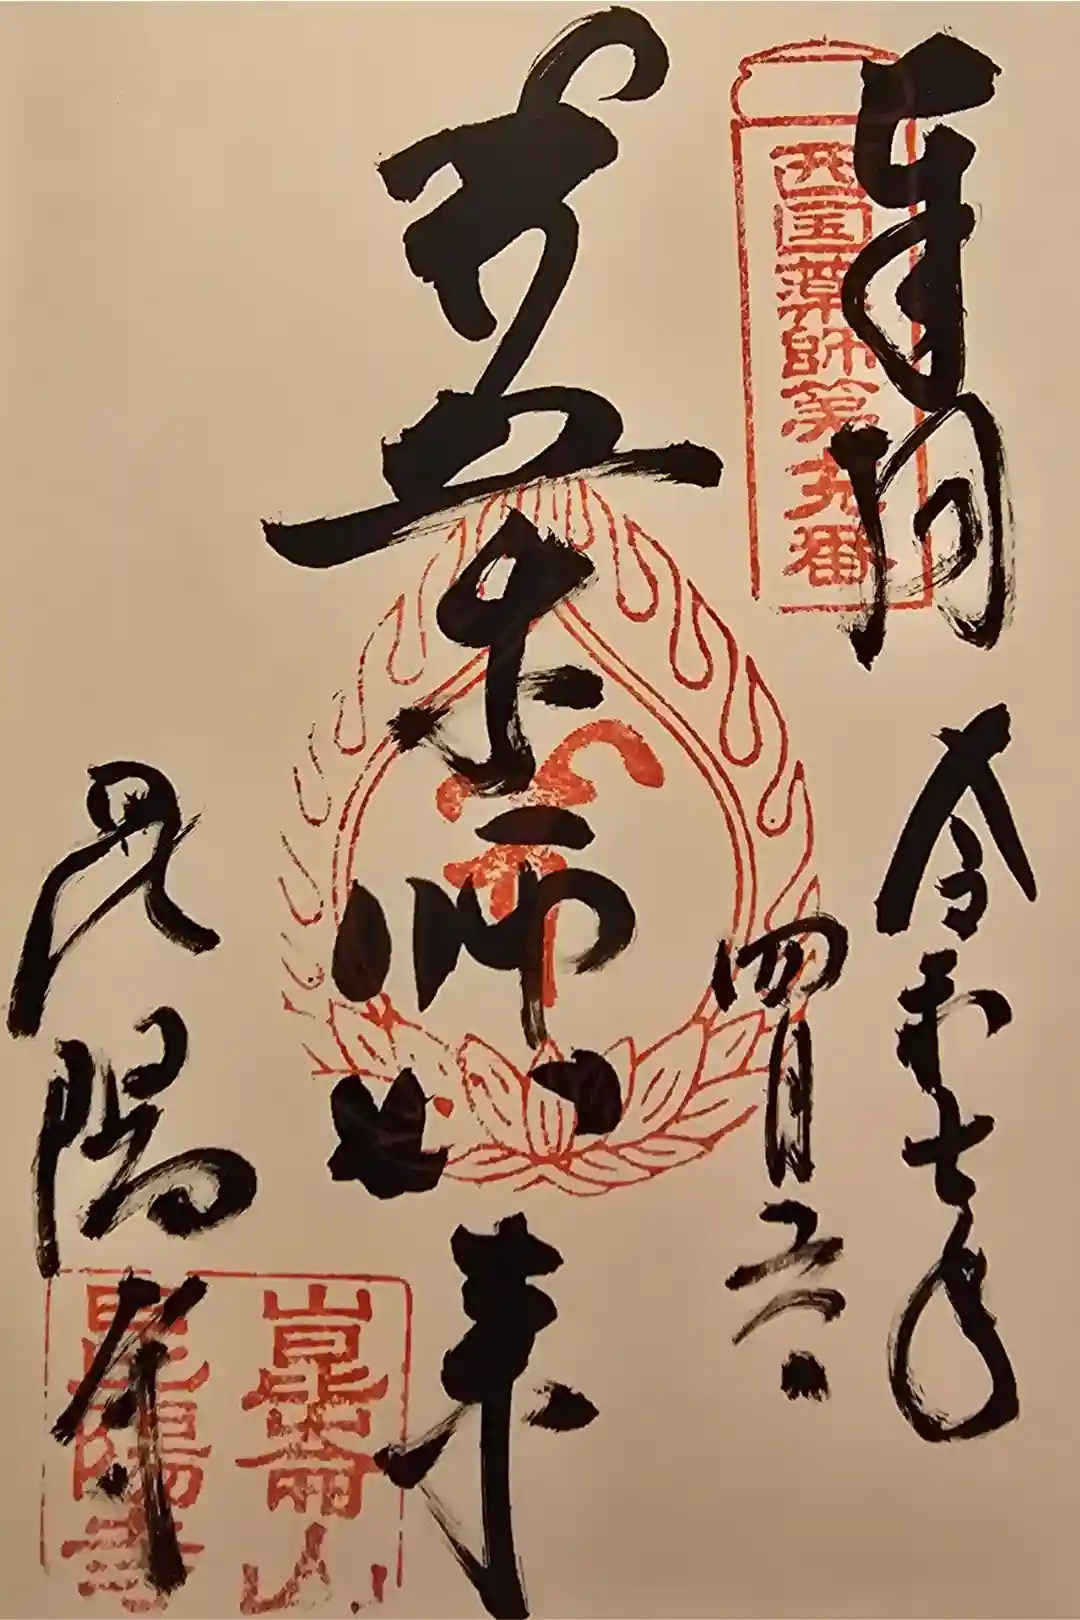 奉拝
西国薬師第十九番
令和七年
四月六日
薬師如来
昆陽寺
崑崙山
昆陽寺